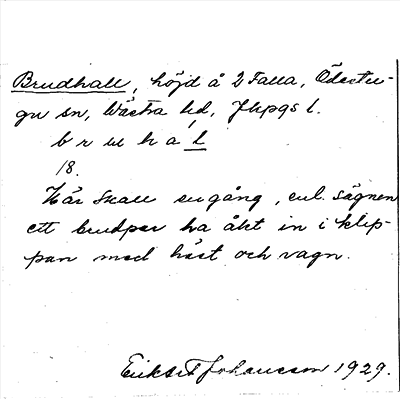 Brudhall, höjd å 2 Falla, Ödestu-
gu sn, Wästra hd, Jkpgs l.
b r u h a l
18.
Här skall en gång, enl. sägnen
ett brudpar ha åkt in i klip-
pan med häst och vagn.
Johansson 1929.